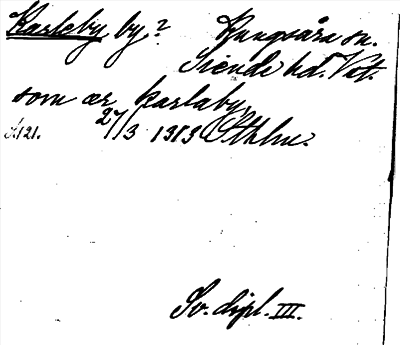 Karleby by? Ljungsåra sn.
Siende hd. Vst.
som ær karlaby,
S. 121. 27/3 1313 Sthlm.
Sv. dipl. III.